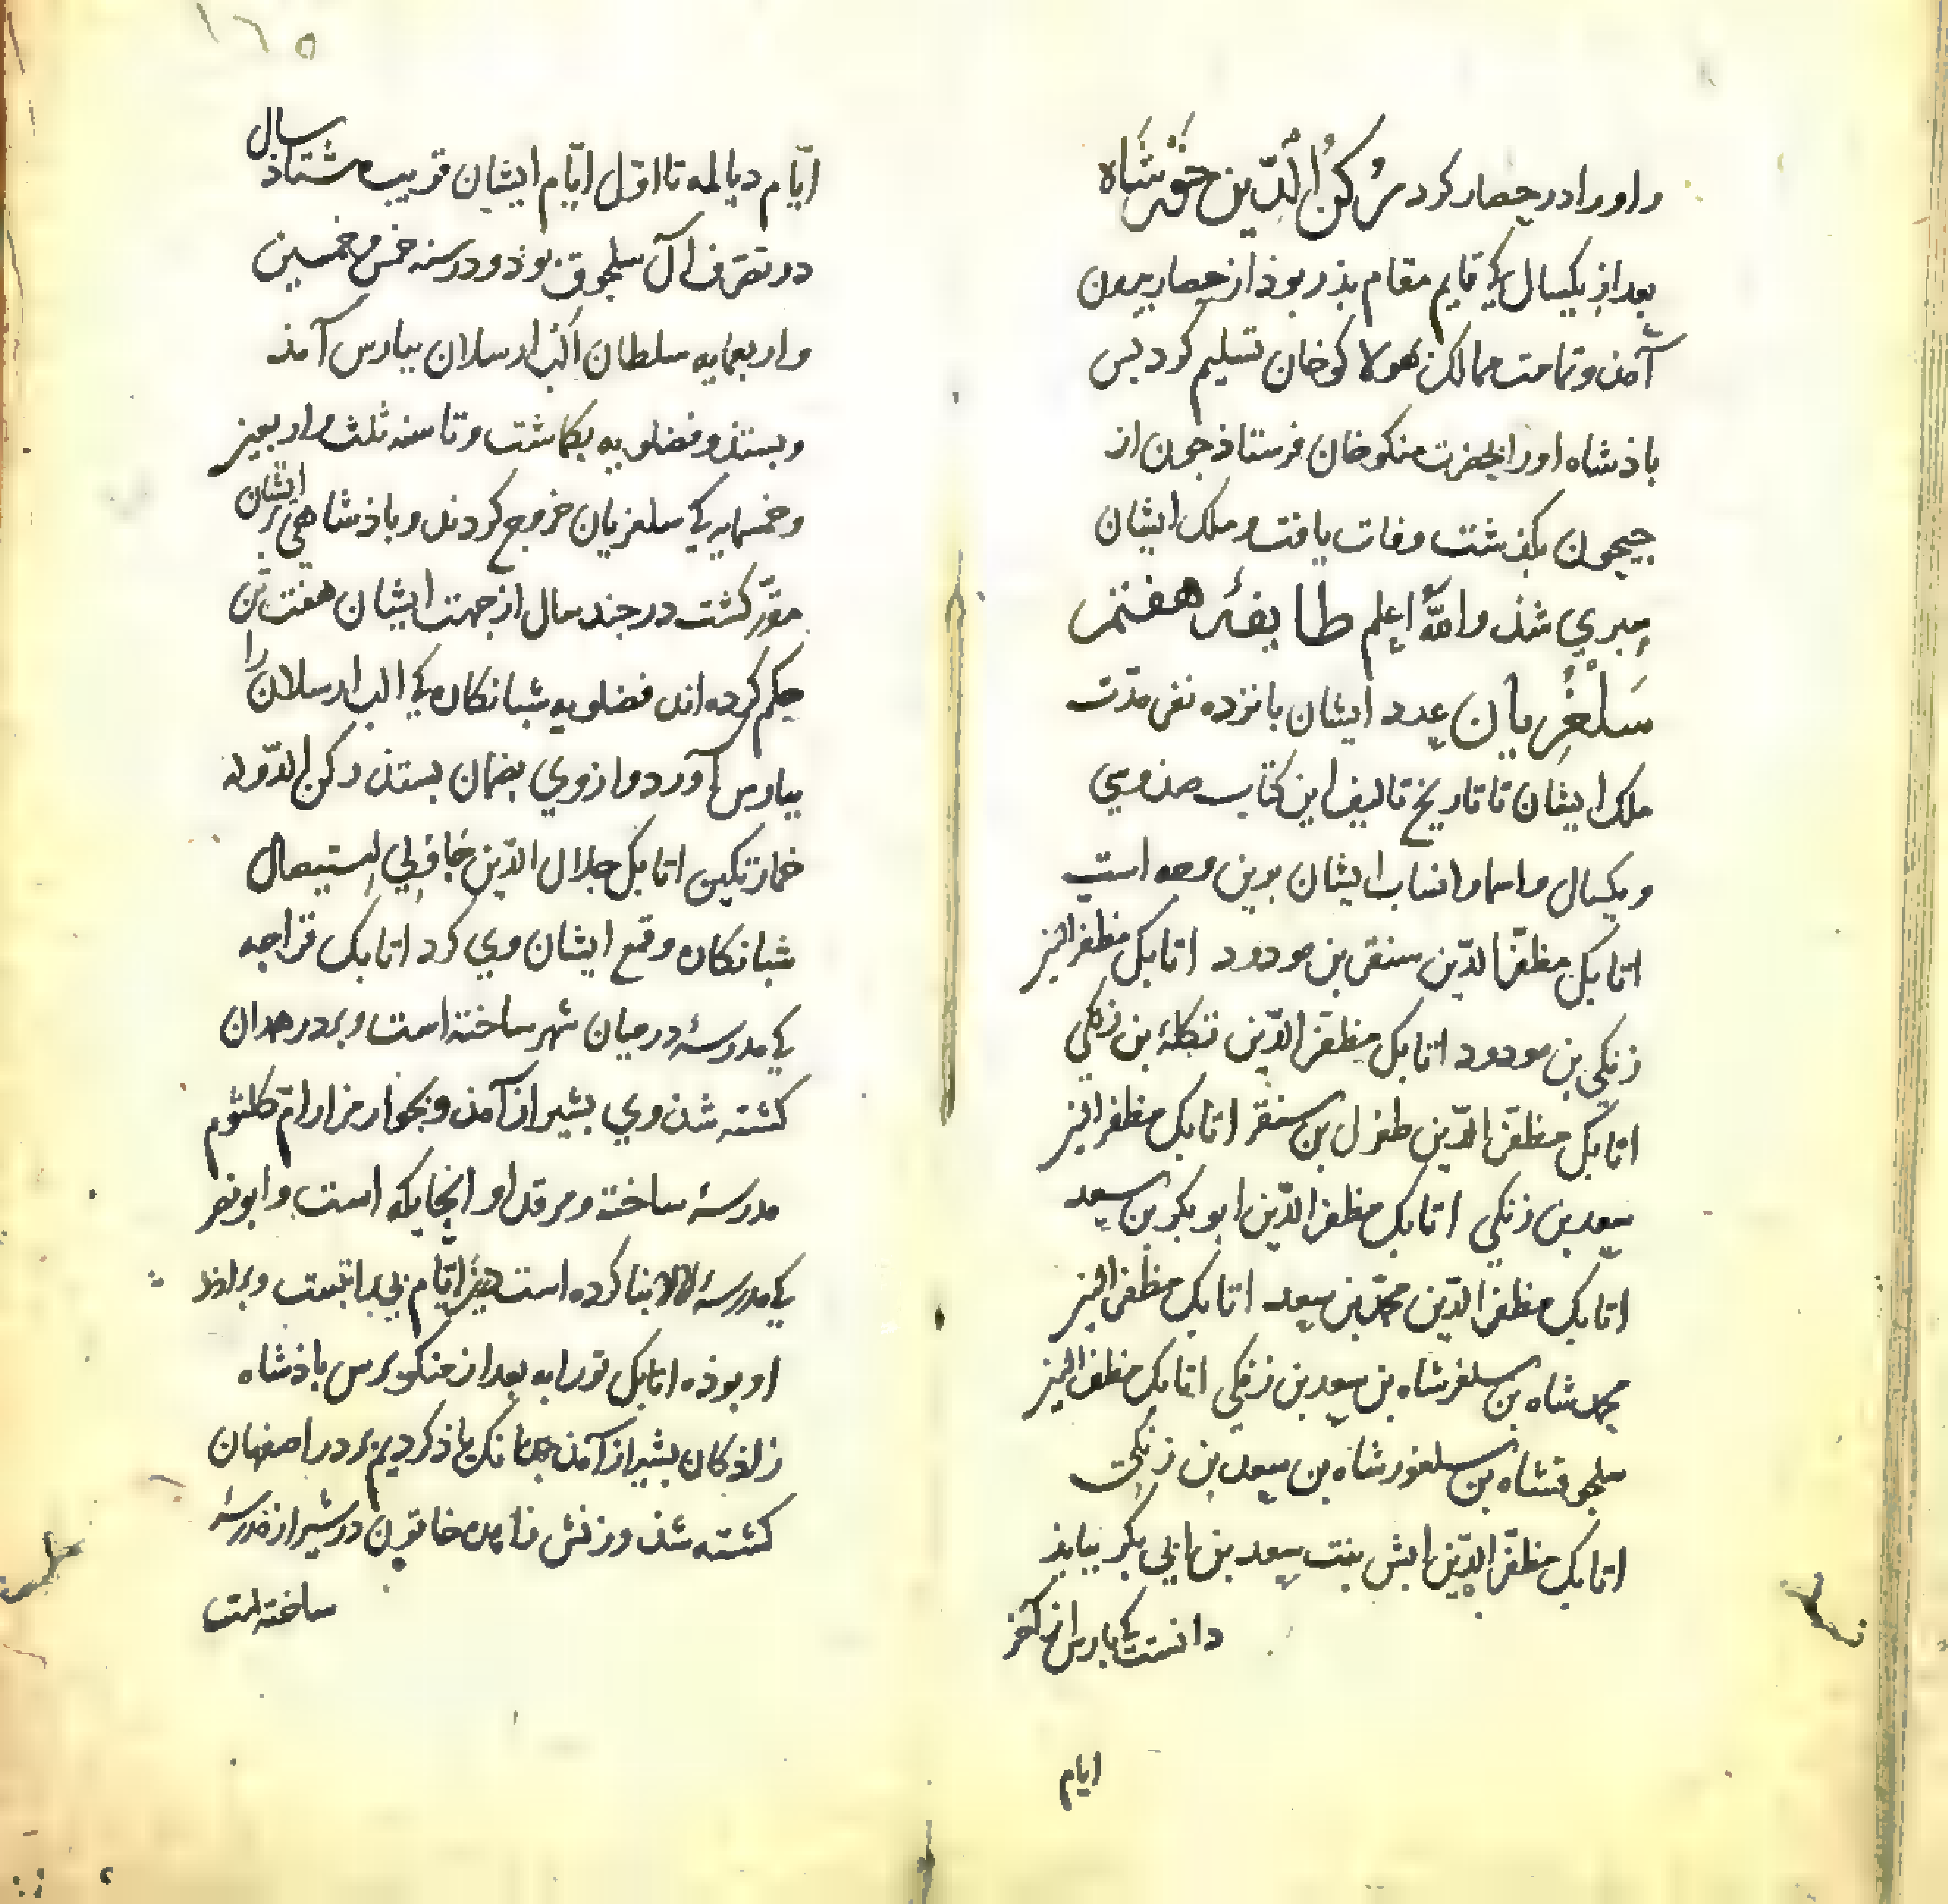 و او را در حصار کرد رُکنُ الدّین خورشاه
بعد از یکسال کی قایم مقام بذر بوذ از حصار بیرون
آمذ و تمامت ممالک بهولاکوخان تسلیم کرد بس
باذشاه او را بحضرت منکوخان فرستاذ جون از
جیحون بکذشت وفات یافت و ملک ایشان
سبری شذ والله اعلم طایفۀ هفتم
سَلْغُریان عدد ایشان بانزده نفر مدّت
ملک ایشان تا تاریخ تالیف این کتاب صذ و سی
و یکسال و اسما و انساب ایشان برین وجه است
اتابک مظفّر الدّین سنقر بن مودود اتابک مظفر الدین
زنکی بن مودود اتابک مظفّر الدّین تکلۀ بن زنکی
اتابک مظفّر الدّین طغرل بن سنقر اتابک مظفر الدین
سعد بن زنکی اتابک مظفر الدّین ابو بکر بن سعد
اتابک مظفر الدّین محمّد بن سعد اتابک مظفر الدین
محمد شاه بن سلغر شاه بن سعد بن زنکی اتابک مظفر الدین
سلجوقشاه بن سلغور شاه بن سعد بن زنکی
اتابک مظفّر الدّین ابش بنت سعد بن ابی بکر ببایذ
دانست کی بارس از آخر
ایام
١٦٥
ایّام دیالمه تا اوّل ایّام ایشان قریب هشتاذ سال
در تصرّف آل سلجوق بوذ و در سنه خمس و خمسین
و اربعمایه سلطان الب ارسلان ببارس آمذ
و بستذ و فضلویه بکماشت و تا سنه ثلث و اربعین
و خمسمایه کی سلغریان خروج کردند و باذشاهی بر ایشان
مقرّر کشت در جند سال از جهت ایشان هفت تن
حکم کرده اند فضلویه شبانکاره کی الب ارسلان را
ببارس آورد و از وی بضمان بستذ رکن الدّوله
خمارتکین اتابک جلال الدّین جاولی استیصال
شبانکاره و قمع ایشان وی کرد اتابک قراجه
کی مدرسۀ در میان شهر ساخته است و بر در همدان
کشته شذ وی بشیراز آمذ و بجوار مزار ام کلثوم
مدرسۀ ساخته و مرقد او آنجایکه است و ابو نصر
کی مدرسۀ لالا بنا کرده است ایّام بی براثبت و براذر
او بوذه اتابک بوزابه بعد از منکوبرس باذشاه
زاذکان بشیراز آمذ جنانک یاذ کردیم بر در اصفهان
کشته شذ و زنش زاهده خاتون در شیراز مدرسۀ
ساخته است